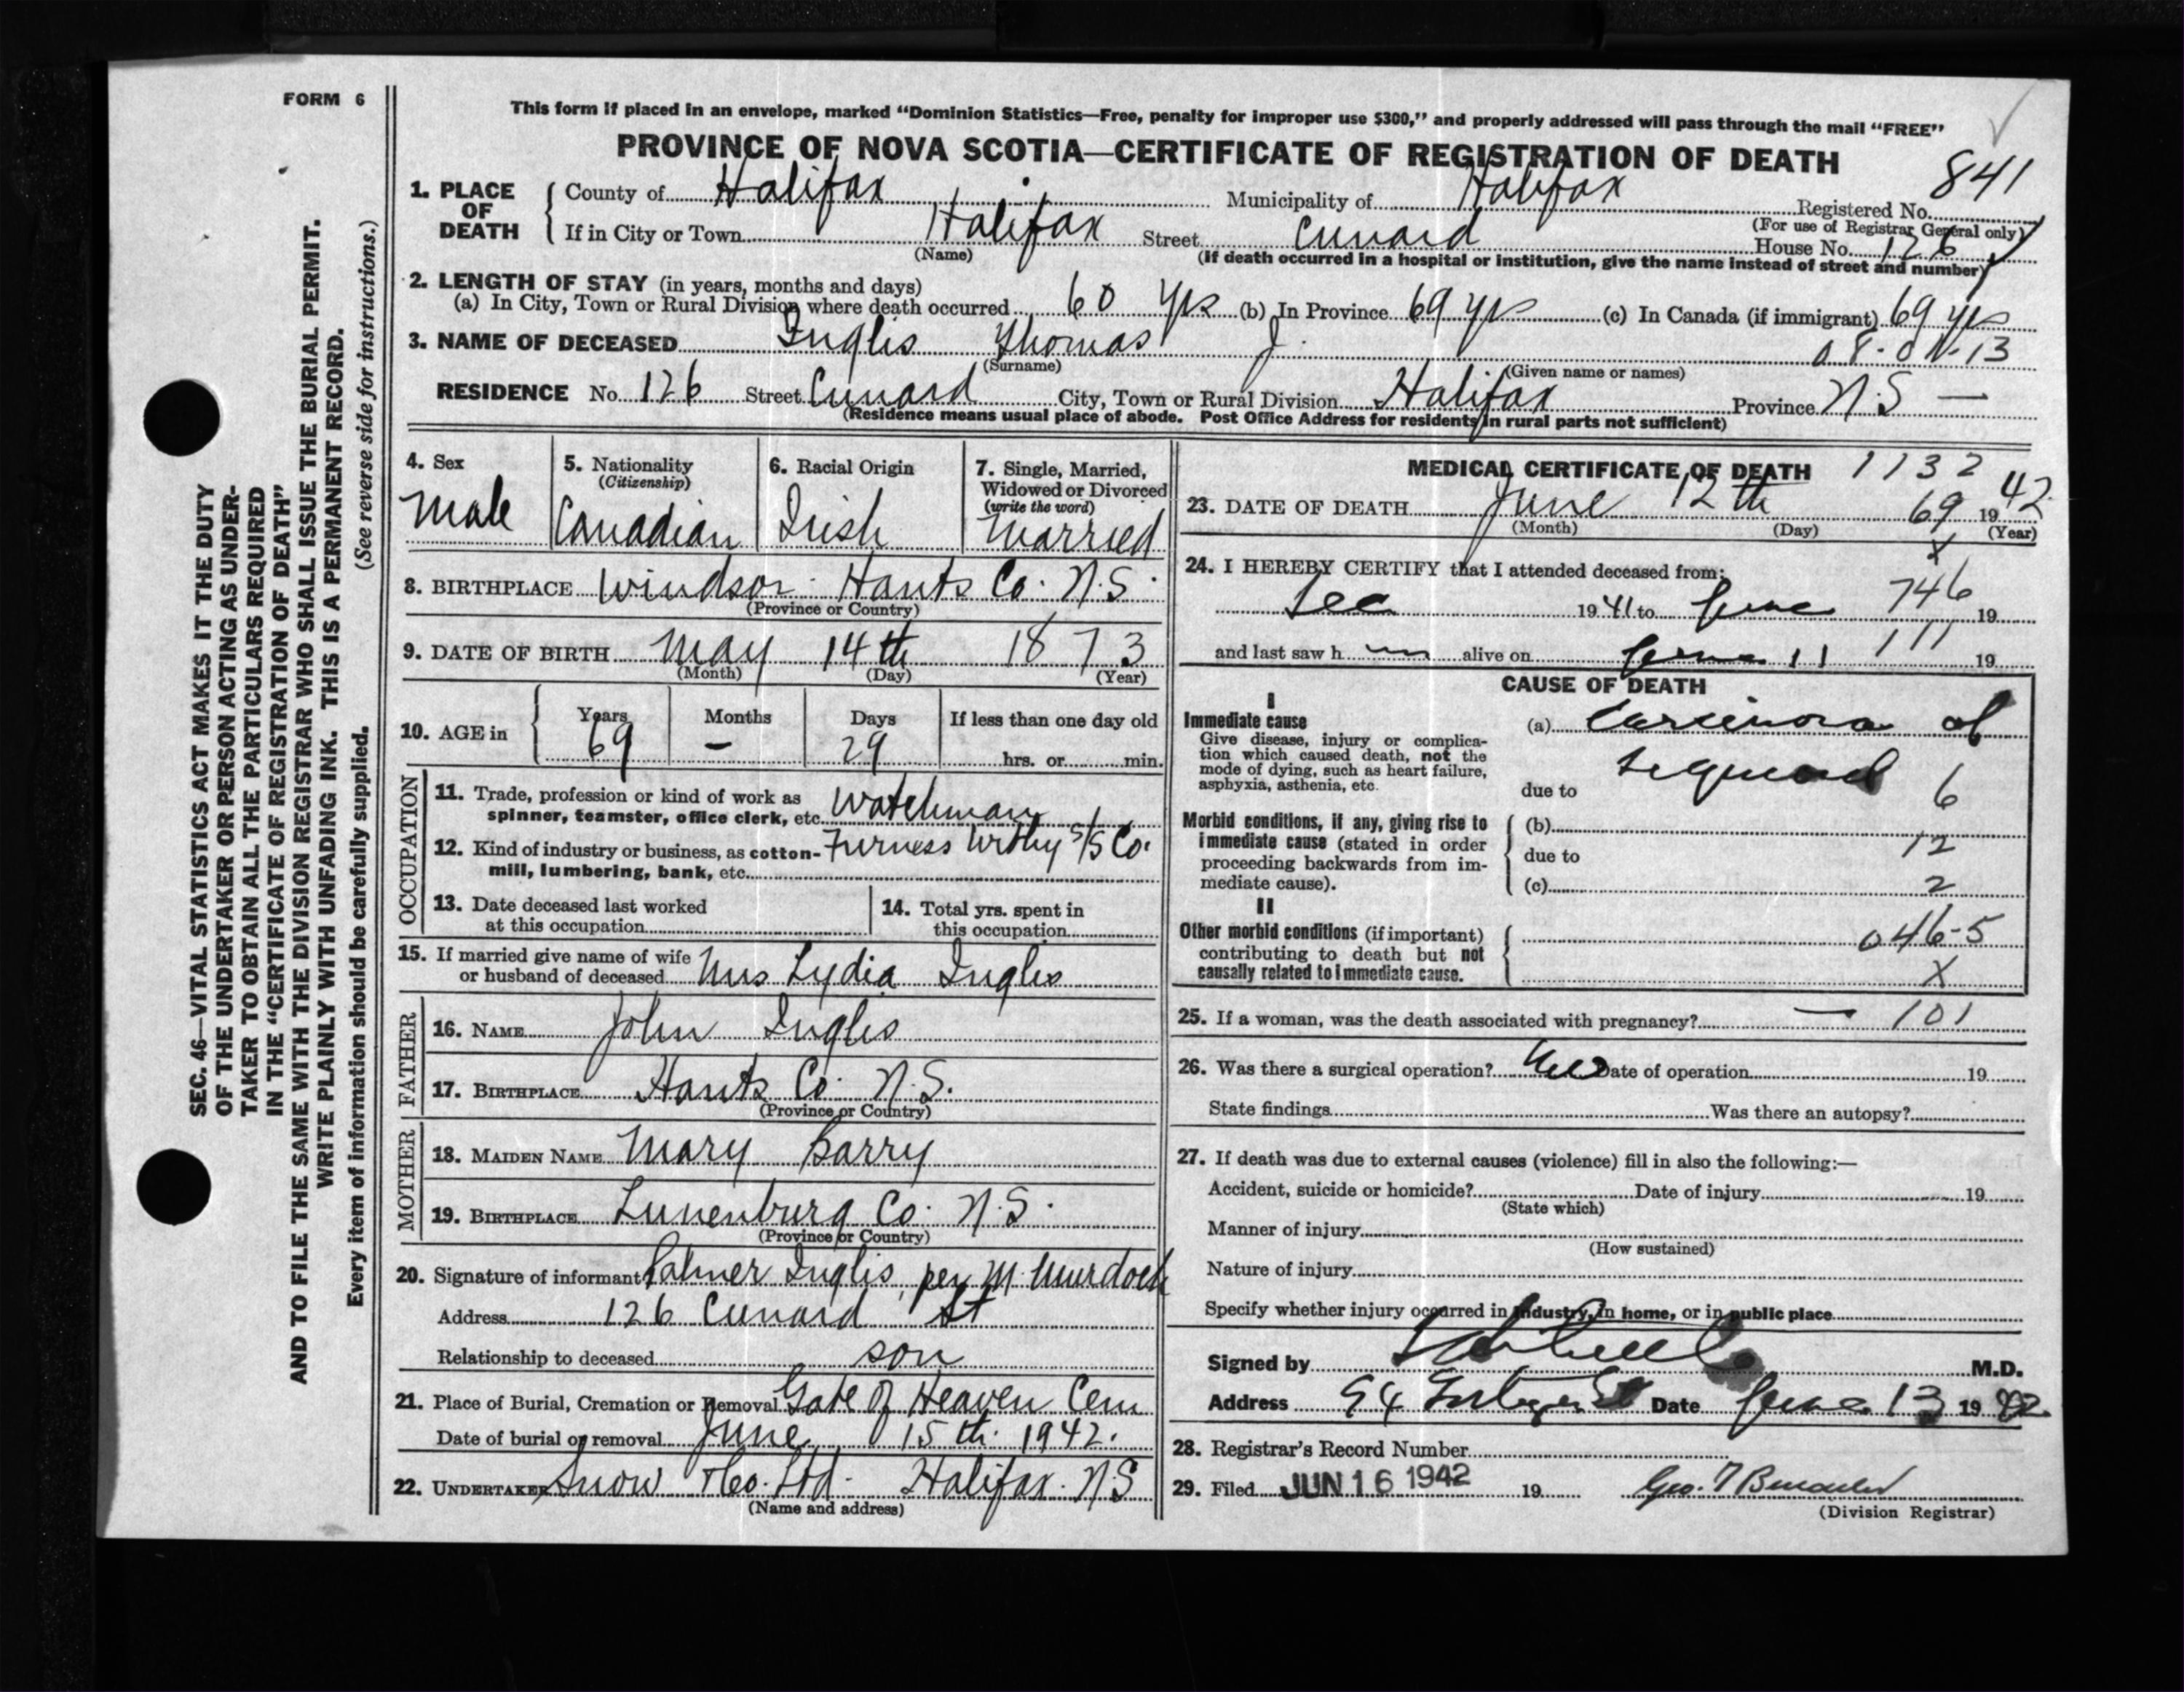 FORM 6
This form if placed in an envelope, marked "Dominion Statistics—Free, penalty for improper use $300," and properly addressed will pass through the mail "FREE"
PROVINCE OF NOVA SCOTIA—CERTIFICATE OF REGISTRATION OF DEATH
841
1. PLACE OF DEATH County of Halifax Municipality of Halifax Registered No.
(For use of Registrar General only)
If in City or Town Halifax Street Cunard House No. 126
(Name) (If death occurred in a hospital or institution, give the name instead of street and number)
2. LENGTH OF STAY (in years, months and days)
(a) In City, Town or Rural Division where death occurred 60 yrs (b) In Province 69 yrs (c) In Canada (if immigrant) 69 yrs
3. NAME OF DECEASED Inglis Thomas J.
(Surname) (Given name or names)
RESIDENCE No. 126 Street Cunard City, Town or Rural Division Halifax Province N.S —
(Residence means usual place of abode. Post Office Address for residents in rural parts not sufficient)
4. Sex
Male
5. Nationality
(Citizenship)
Canadian
6. Racial Origin
Irish
7. Single, Married,
Widowed or Divorced
(write the word)
Married
8. BIRTHPLACE Windsor Hants Co. N.S.
(Province or Country)
9. DATE OF BIRTH May 14th 1873
(Month) (Day) (Year)
10. AGE in Years Months Days If less than one day old
69 — 29 hrs. or min.
OCCUPATION
11. Trade, profession or kind of work as
spinner, teamster, office clerk, etc. Watchman
12. Kind of industry or business, as cotton- Furness Withy S/S Co.
mill, lumbering, bank, etc.
13. Date deceased last worked
at this occupation
14. Total yrs. spent in
this occupation
15. If married give name of wife
or husband of deceased Mrs Lydia Inglis
FATHER
16. NAME John Inglis
17. BIRTHPLACE Hants Co. N.S.
(Province or Country)
MOTHER
18. MAIDEN NAME Mary Barry
19. BIRTHPLACE Lunenburg Co. N.S.
(Province or Country)
20. Signature of informant Palmer Inglis, per M Murdoch
Address 126 Cunard St
Relationship to deceased son
21. Place of Burial, Cremation or Removal Gate of Heaven Cem
Date of burial or removal June 15th 1942.
22. UNDERTAKER Snow & Co. Ltd. Halifax. N.S
(Name and address)
MEDICAL CERTIFICATE OF DEATH 1132
23. DATE OF DEATH June 12th 69 1942
(Month) (Day) (Year)
x
24. I HEREBY CERTIFY that I attended deceased from:
Dec 1941 to June 746 19
and last saw h im alive on June 11 111 19
CAUSE OF DEATH
I
Immediate cause
Give disease, injury or complica-
tion which caused death, not the
mode of dying, such as heart failure,
asphyxia, asthenia, etc.
(a) Carcinoma of
due to
6
Morbid conditions, if any, giving rise to
immediate cause (stated in order
proceeding backwards from im-
mediate cause).
(b)
due to 12
(c) 2
II
Other morbid conditions (if important)
contributing to death but not
causally related to immediate cause.
046-5
X
25. If a woman, was the death associated with pregnancy? — 101
26. Was there a surgical operation? Date of operation 19
State findings Was there an autopsy?
27. If death was due to external causes (violence) fill in also the following:—
Accident, suicide or homicide? Date of injury 19
(State which)
Manner of injury
(How sustained)
Nature of injury
Specify whether injury occurred in industry, in home, or in public place
Signed by M.D.
Address 94 Date June 13 1942
28. Registrar's Record Number
29. Filed JUN 16 1942 19 Geo. T
(Division Registrar)
SEC. 46—VITAL STATISTICS ACT MAKES IT THE DUTY
OF THE UNDERTAKER OR PERSON ACTING AS UNDER-
TAKER TO OBTAIN ALL THE PARTICULARS REQUIRED
IN THE "CERTIFICATE OF REGISTRATION OF DEATH"
AND TO FILE THE SAME WITH THE DIVISION REGISTRAR WHO SHALL ISSUE THE BURIAL PERMIT.
WRITE PLAINLY WITH UNFADING INK. THIS IS A PERMANENT RECORD.
Every item of information should be carefully supplied. (See reverse side for instructions.)